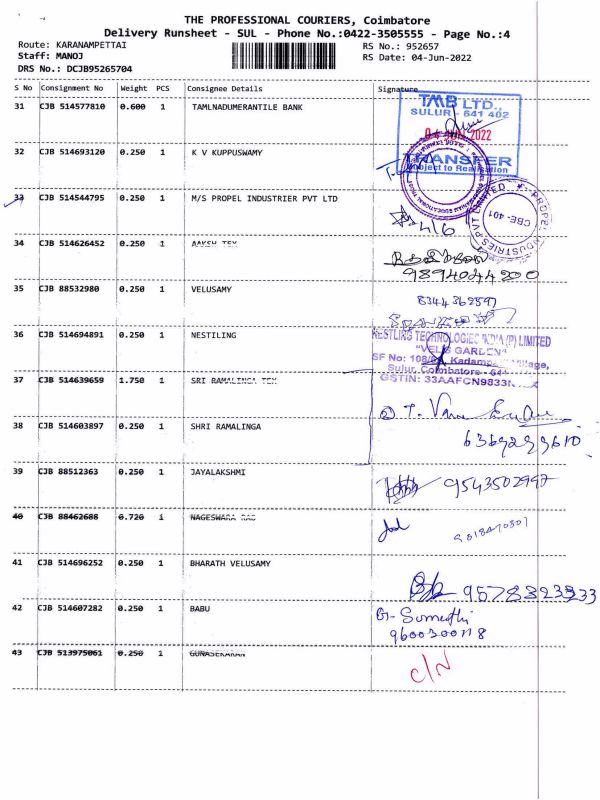 THE PROFESSIONAL COURIERS, Coimbatore
Delivery Runsheet - SUL - Phone No.:0422-3505555 - Page No.:4
Route: KARANAMPETTAI RS No.: 952657
Staff: MANOJ RS Date: 04-Jun-2022
DRS No.: DCJB95265704
S No Consignment No Weight PCS Consignee Details Signature
31 CJB 514577810 0.600 1 TAMLNADUMERANTILE BANK
TMB LTD.,
SULUR - 641 402
2022
TRANSFER
Subject to Realisation
32 CJB 514693120 0.250 1 K V KUPPUSWAMY
33 CJB 514544795 0.250 1 M/S PROPEL INDUSTRIER PVT LTD
4/6
PROPEL INDUSTRIES PVT LIMITED
CBE-401
34 CJB 514626452 0.250 1 AAKSH TEX
9894044200
35 CJB 88532980 0.250 1 VELUSAMY
8344362897
36 CJB 514694891 0.250 1 NESTILING
NESTLING TECHNOLOGIES INDIA (P) LIMITED
"VELIS GARDEN"
SF No: 108/ Village,
Sulur, Coimbatore - 641
GSTIN: 33AAFCN9833
37 CJB 514639659 1.750 1 SRI RAMALINGA TEX
38 CJB 514603897 0.250 1 SHRI RAMALINGA
39 CJB 88512363 0.250 1 JAYALAKSHMI
9543502997
40 CJB 88462688 0.720 1 NAGESWARA RAO
41 CJB 514696252 0.250 1 BHARATH VELUSAMY
9578323333
42 CJB 514607282 0.250 1 BABU
G. Sumathi
9600300718
43 CJB 513975061 0.250 1 GUNASEKARAN
C/N